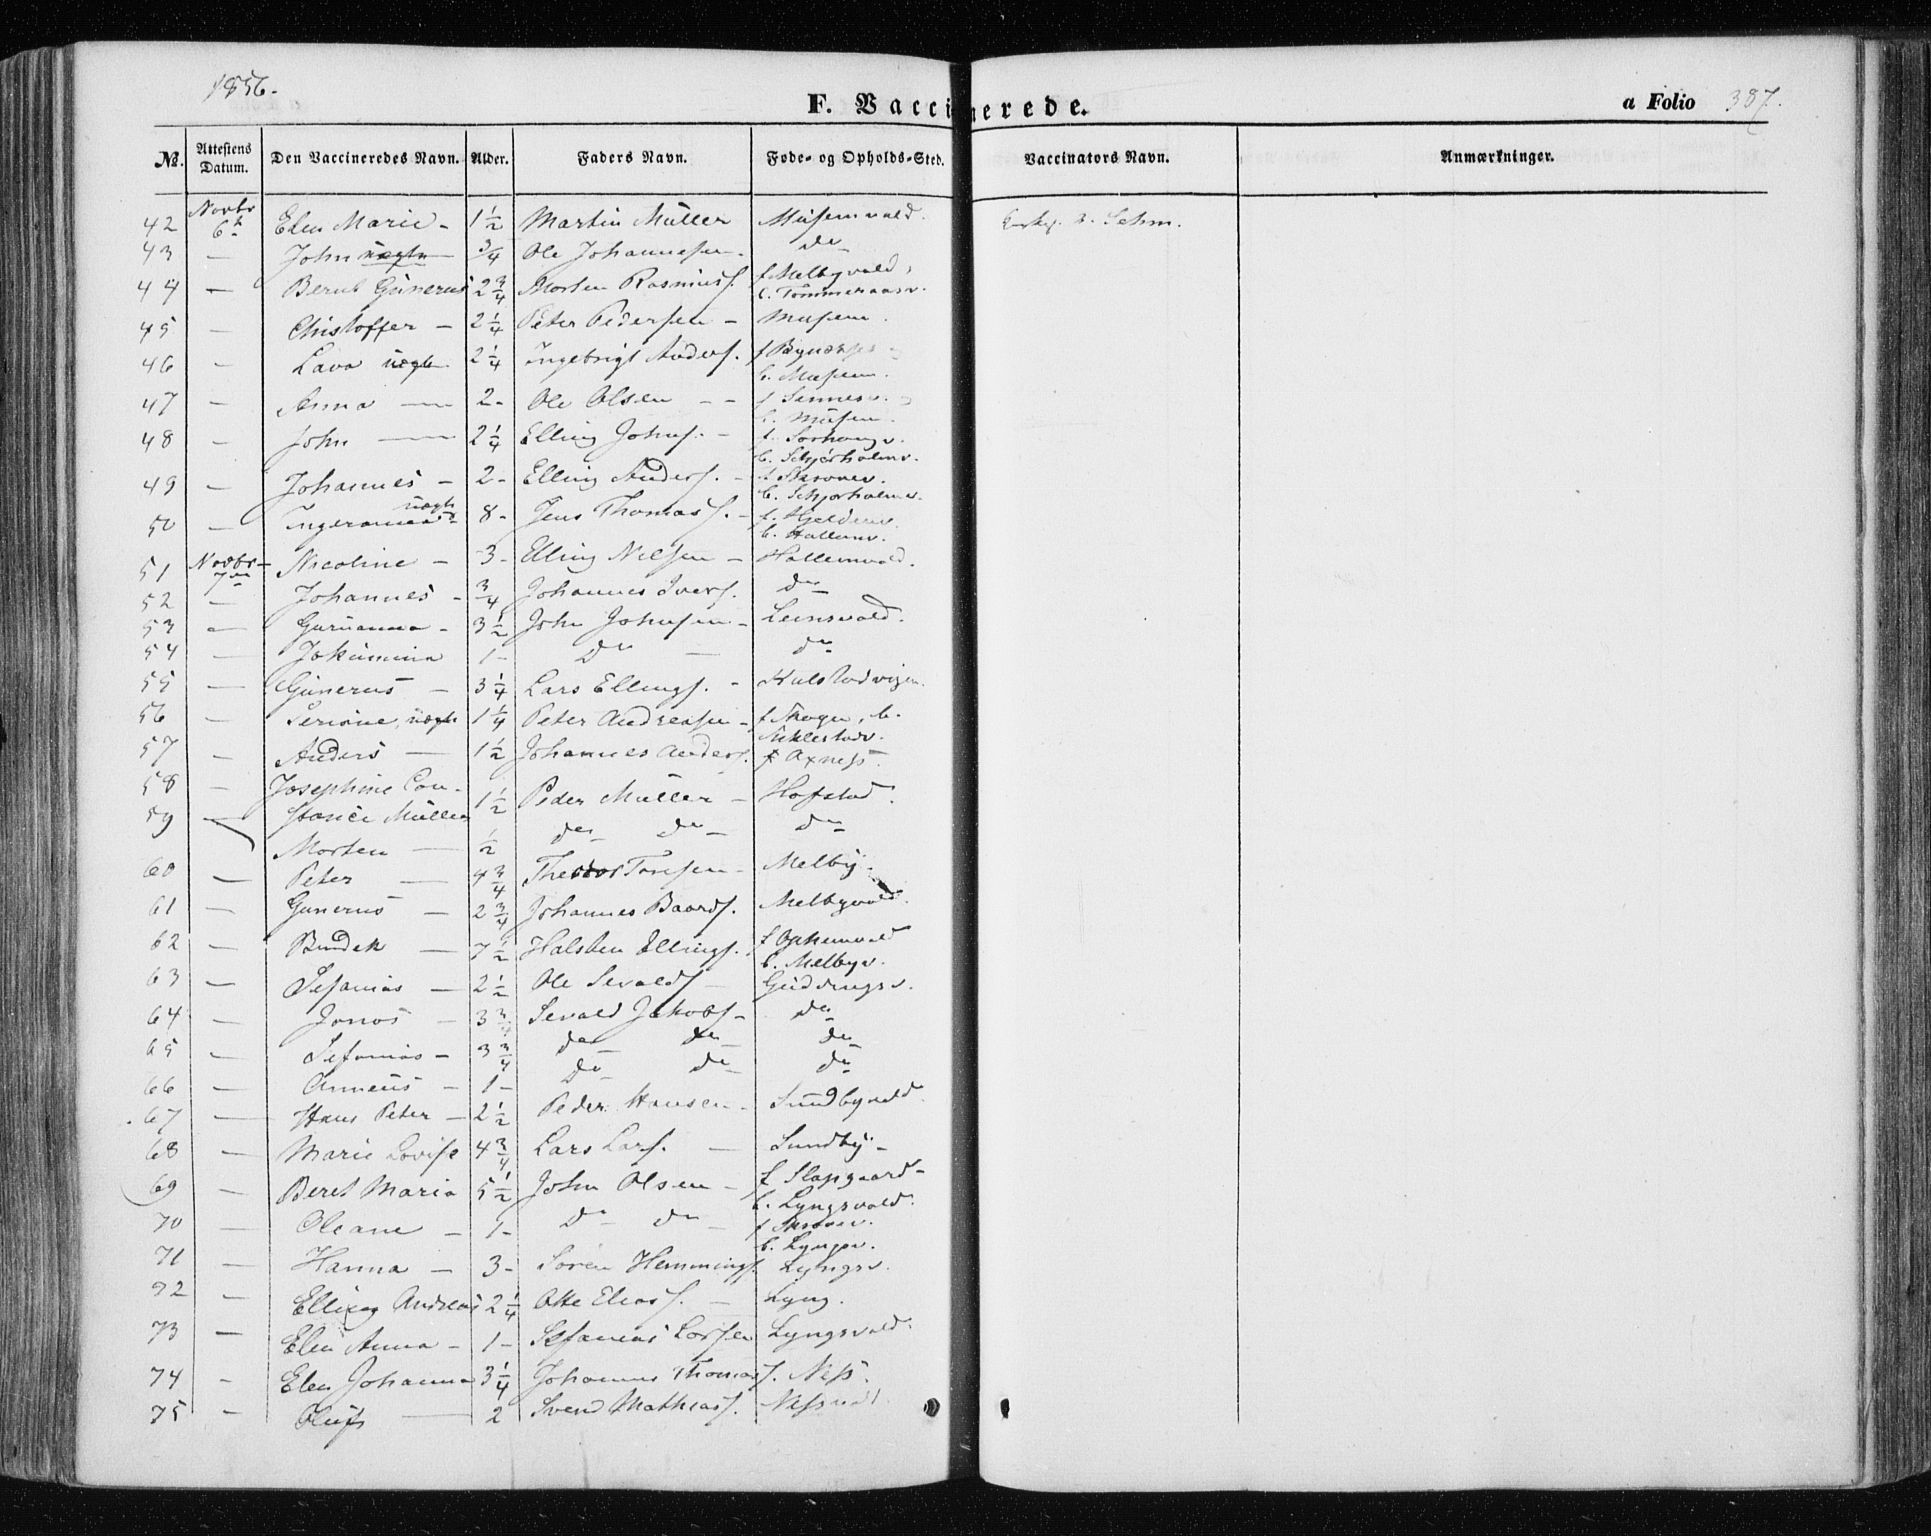 1856.
F. Vaccinerede.
a Folio 387.
No. Attestens Datum. Den Vaccineredes Navn. Alder. Faders Navn. Føde- og Opholds-Sted. Vaccinators Navn. Anmærkninger.
42 Novbr 6te Elen Marie - 1 1/2 Martin Müller Musemvald. Schm.
43 — John uægte 3/4 Ole Johannesen - do
44 — Bernt Gunerus 2 3/4 Morten Rasmuss. f Melbyvald,
b. Tömmeraasv.
45 — Christoffer — 2 1/4 Peter Pedersen — Musem.
46 — Lava uægte 2 1/4 Ingebrigt Anders. f Bynesset
b. Musem.
47 — Anna — 2 - Ole Olsen - - f
b. Musem.
48 — John — 2 1/4 Elling Johns. - f.
b. Schjerholmv.
49 — Johannes - 2 - Elling Anders. - f Skrovev.
b. Schjerholmv.
50 — Ingeranna uægte 8 - Jens Thomass. - f. Hjeldenv.
b. Hallemv.
51 Novbr 7de Nicoline — 3 - Elling Nilsen — Hallemvald.
52 — Johannes - 3/4 Johannes Ivers. do
53 — Guruanna - 3 1/2 John Johnsen - Leinsvald.
54 — Jokumina 1 - Do — do
55 — Gunerus — 3 1/4 Lars Ellings. -
56 — Serine, uægte 1 1/4 Peter Andreasen - f Skogn, b.
Stiklestadv.
57 — Anders — 1 1/2 Johannes Anders. f Axness.
58 — Josephine Con-
59 — stance Müller 1 1/2 Peder Müller — Hofstad.
Morten — 1/2 do do do
60 — Peter — 4 3/4 Toresen - Melby -
61 — Gunerus — 2 3/4 Johannes Baards. Melbyvald.
62 — Bendek — 7 1/2 Halsten Ellings. f Ophemvald
b. Melbyv.
63 — Sefanias — 2 1/2 Ole Sevalds — Guddingsv.
64 — Jonas — 3 3/4 Sevald Jakobs - do
65 — Sefanias - 3 3/4 do do do
66 — Anneus — 1 - do do do
67 — Hans Peter - 2 1/2 Peder Hansen - Sundbyvald.
68 — Marie Lovise 4 3/4 Lars Lars. — Sundby -
69 — Beret Maria 5 1/2 John Olsen - f Slapgaard -
b. Lyngsvald.
70 — Oleane — 1 - Do do f Skrovev.
b. Lyngsv.
71 — Hanna — 3 - Sören Hemmings. Lyngsv.
72 — Elling Andreas 2 1/4 Otte Elias s. — Lyng.
73 — Elen Anna - 1 - Sefanias Larsen Lyngsvald.
74 - Elen Johanna 3 1/4 Johannes Thomass. Ness.
75 - Oluf — 2 Svend Mathiass. Nessvald